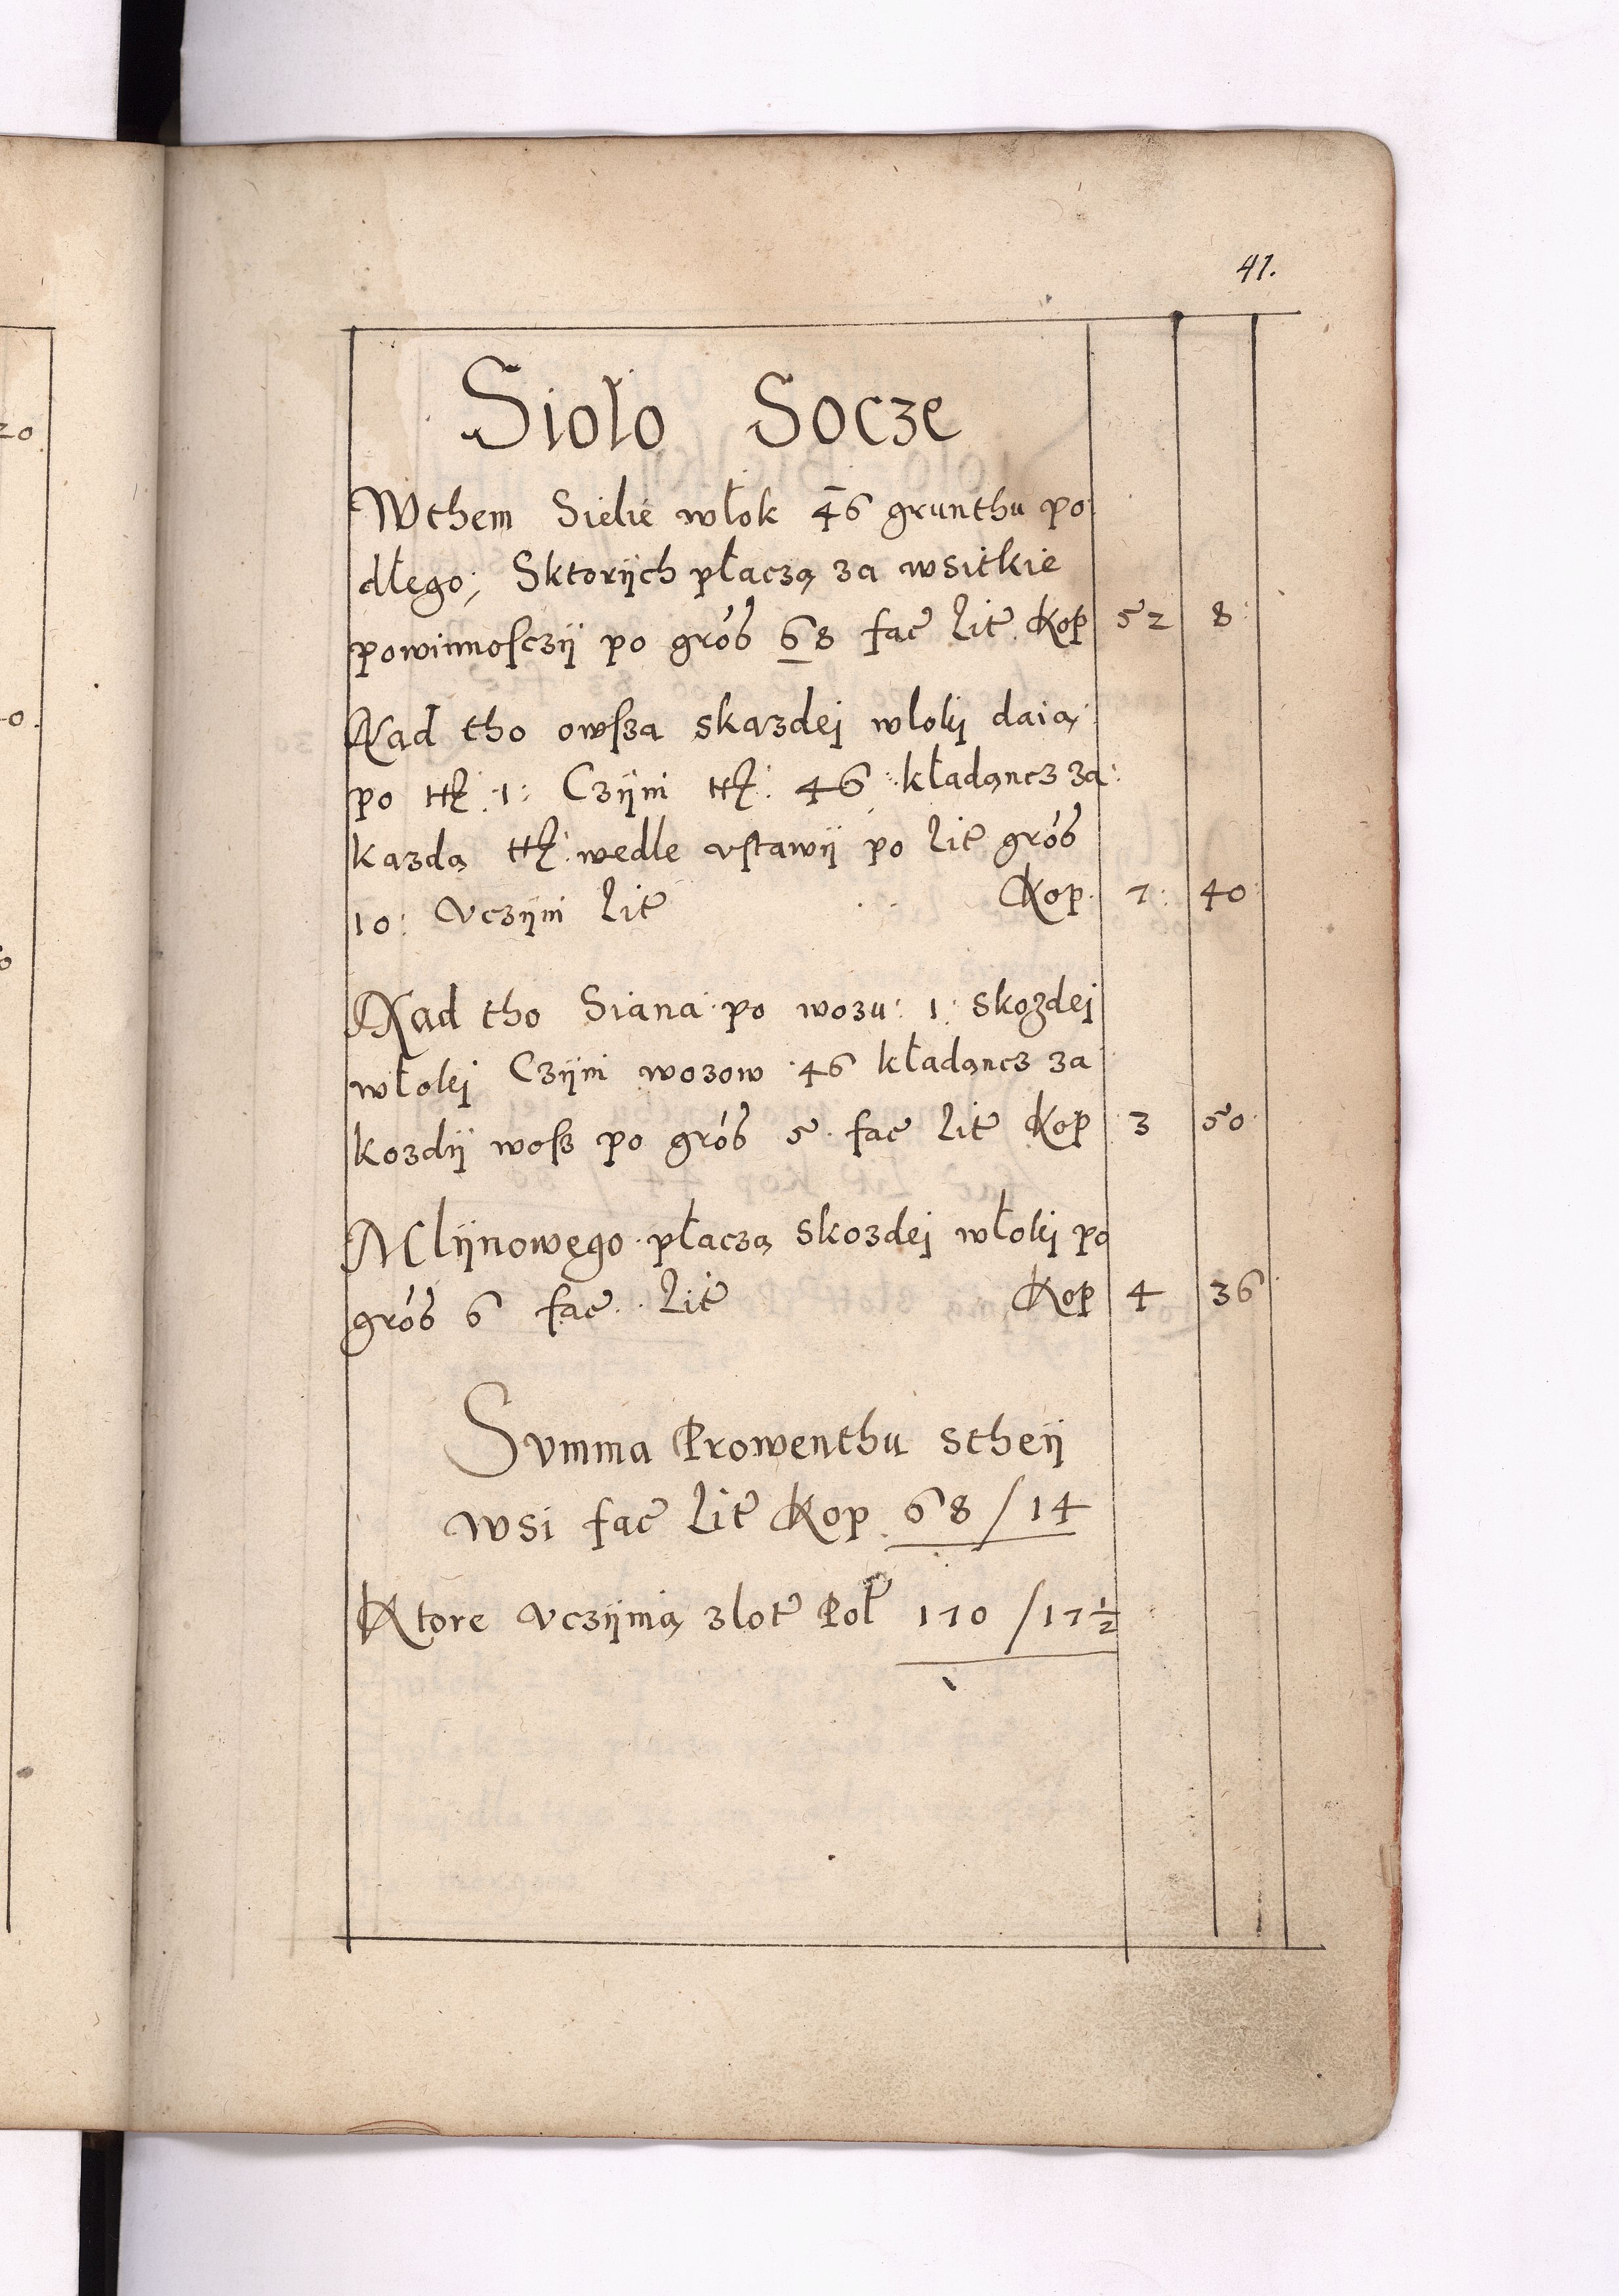 41.
Sioło Socze
Wthem Sielie włok 46 grunthu po
dłego; Sktorÿch płaczą za wsitkie
powinnosczÿ po groß 68 fac Lit Kop 52 8
Nad tho owsza skazdei włoki daią
po 1: Czÿni 46 kładancz za
kazda wedle vstawÿ po lit groß
10: vczÿni lit Kop. 7: 40
Nad tho Siana po wozu: 1: skozdei
włoki Czÿni wozow 46 kładancz za
kozdÿ wosz po groß 5 fac lit Kop 3 50
Mlÿnowego płaczą skozdei włoki po
groß 6 fac lit Kop 4 36
Svmma Prowenthu stheÿ
wsi fac Lit Kop 68/14
Ktore vczÿnią złot Pol 170/17½
20
0.